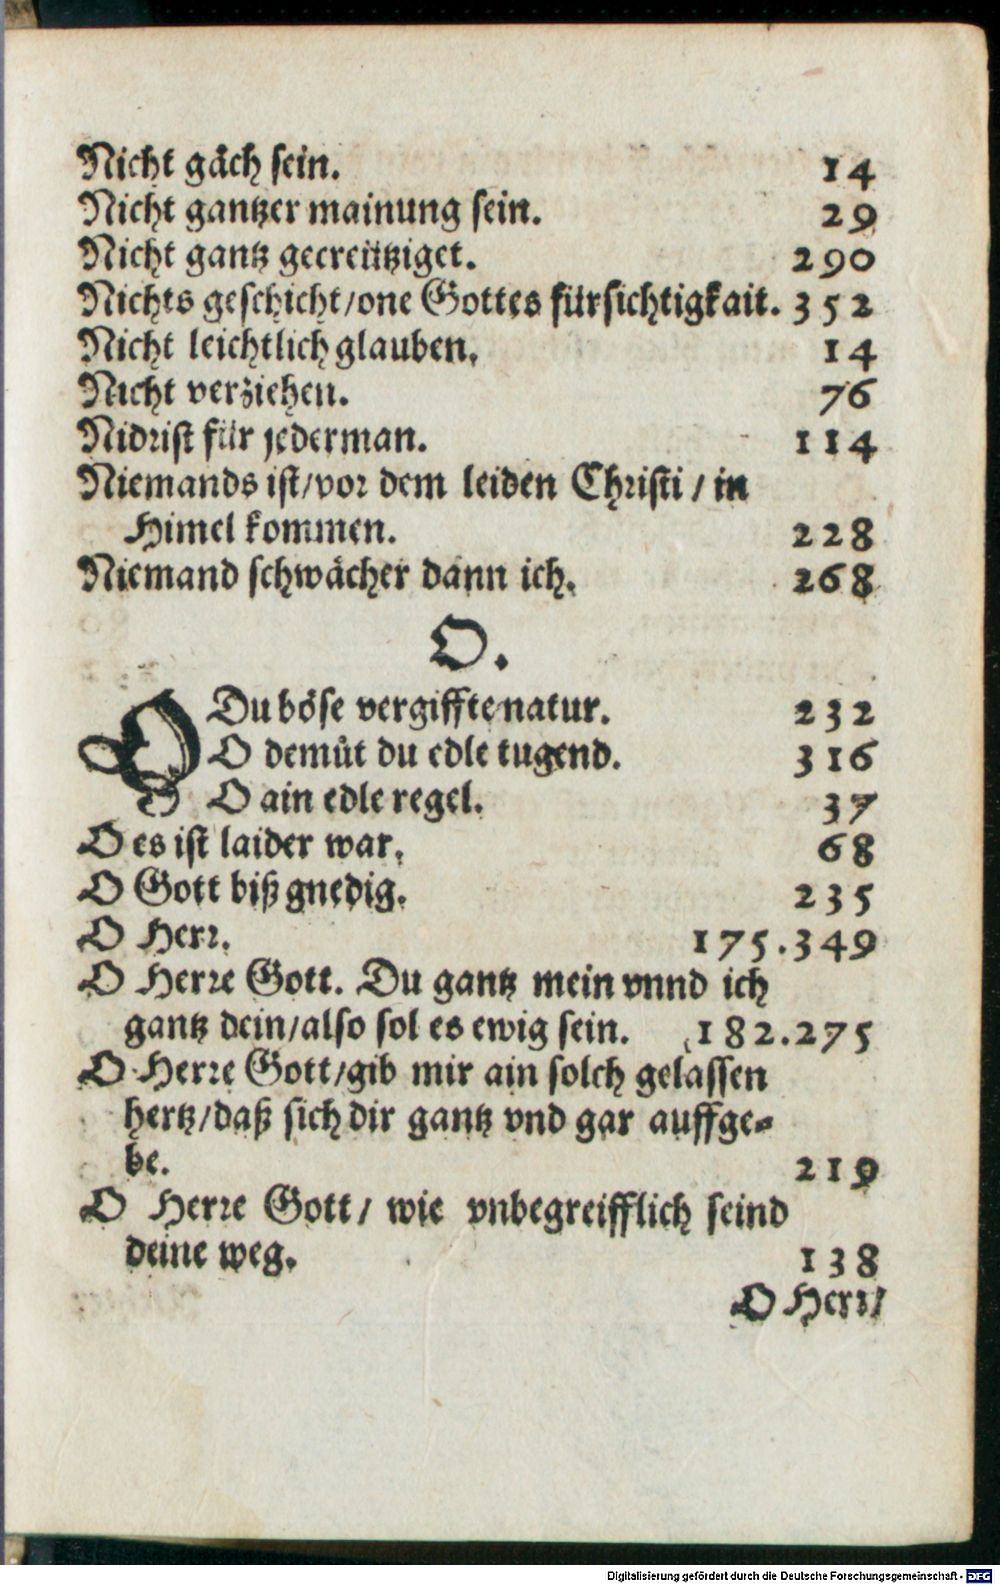 Nicht gäch sein. 14
Nicht gantzer mainung sein. 29
Nicht gantz gecreütziget. 290
Nichts geschicht/one Gottes fürsichtigkait. 352
Nicht leichtlich glauben. 14
Nicht verziehen. 76
Nidrist für jederman. 114
Niemands ist/vor dem leiden Christi / in
Himel kommen. 228
Niemand schwächer dann ich. 268
O.
O Du böse vergiffte natur. 232
O demůt du edle tugend. 316
O ain edle regel. 37
O es ist laider war. 68
O Gott biß gnedig. 235
O Herr. 175.349
O Herre Gott. Du gantz mein vnnd ich
gantz dein/also sol es ewig sein. 182.275
O Herre Gott/gib mir ain solch gelassen
hertz/daß sich dir gantz vnd gar auffge-
be. 219
O Herre Gott/ wie vnbegreifflich seind
deine weg. 138
O Herr/
Digitalisierung gefördert durch die Deutsche Forschungsgemeinschaft - DFG